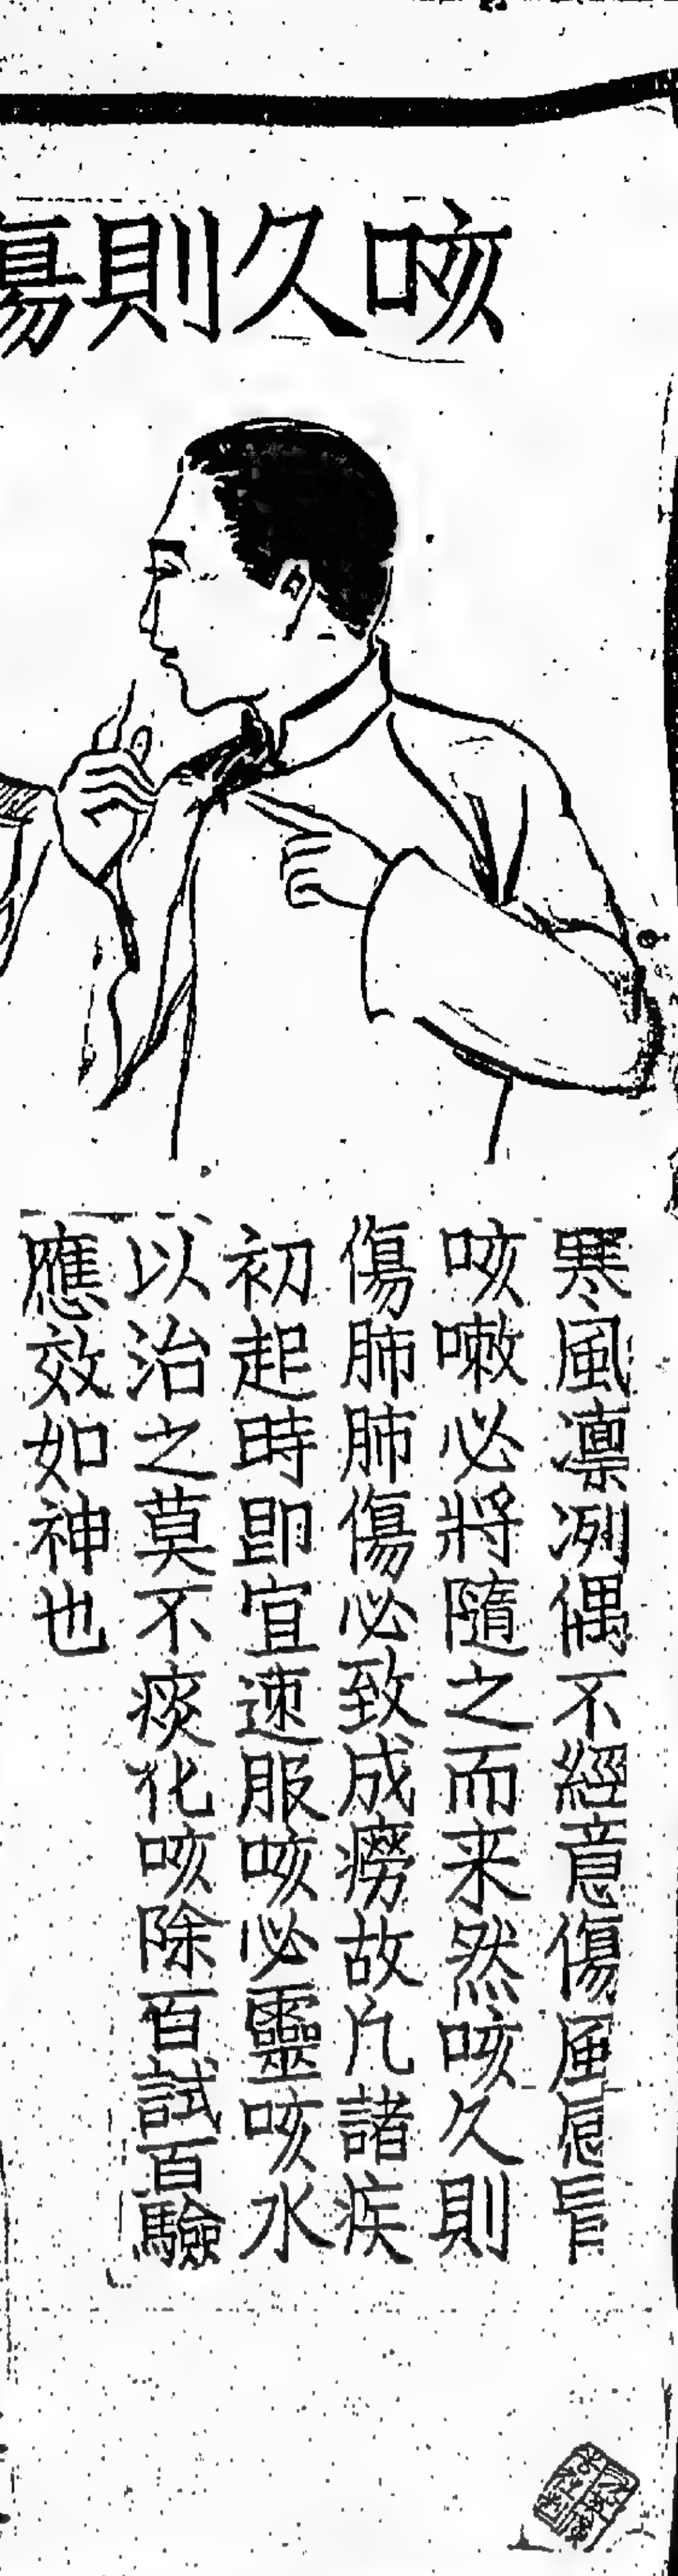 咳久則傷
寒風凛冽偶不經意傷風
咳嗽必將隨之而来然咳久則
傷肺肺傷必致成癆故凢諸疾
初起時即宜速服咳必靈咳水
以治之莫不痰化咳除百試百驗
應效如神也